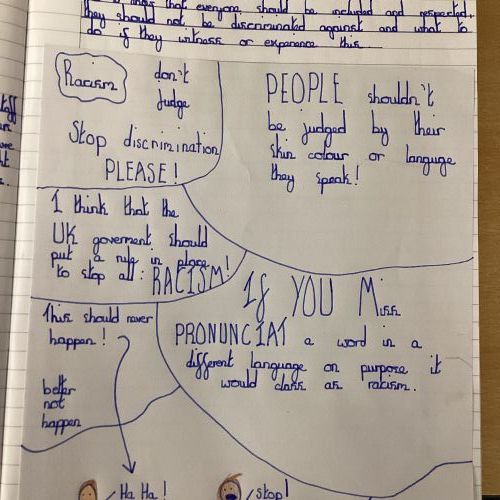 that everyone should be included and respected.
they should not be discriminated against and what to
do if they witness or experience this.
Racism
don't
Judge
Stop discrimination
PLEASE!
PEOPLE shouldn't
be judged by their
skin colour or languge
they speak!
I think that the
UK goverment should
put a rule in place
to stop all: RACISM!
If YOU Miss
PRONUNCIAT a word in a
different language on purpose it
would class as racism.
This should never
happen!
better
not
happen
Ha Ha!
stop!